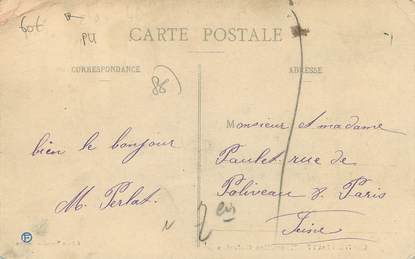 60€
PU
CARTE POSTALE
CORRESPONDANCE
ADRESSE
86
bien le bonjour
M. Perlat.
Monsieur et madame
Paulet rue de
Poliveau 8. Paris
Seine